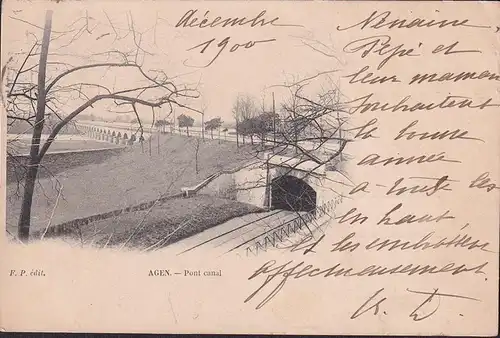 décembre
1900
Nénaine,
Pépé et
leur maman
souhaitent
la bonne
année
a toute les
en haut,
et les embrasse
affectueusement
F. P. édit.
AGEN. — Pont canal